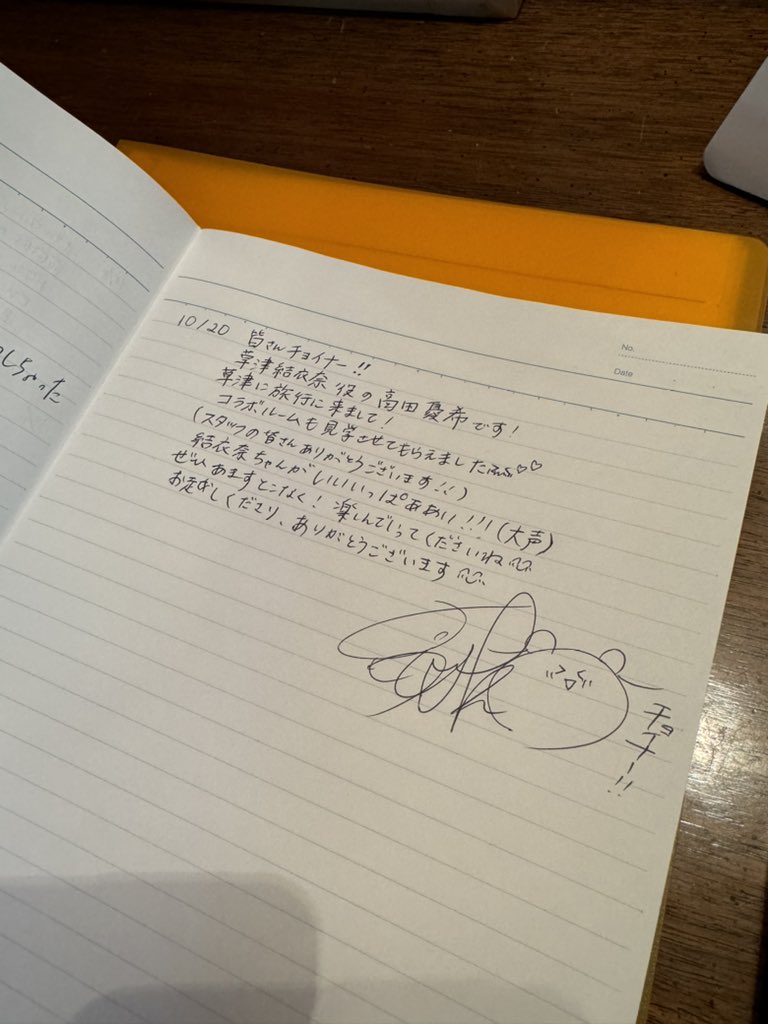 しちゃった
No.
Date
10/20 皆さんチョイナー!!
草津結衣奈役の高田憂希です!
草津に旅行に来まして!
コラボルームも見学させてもらえました♡♡
(スタッフの皆さんありがとうございます!!)
結衣奈ちゃんがいいいっぱああい!!!(大声)
ぜひあますとこなく!楽しんでいってくださいね
お越しくださり、ありがとうございます
チョチー!!